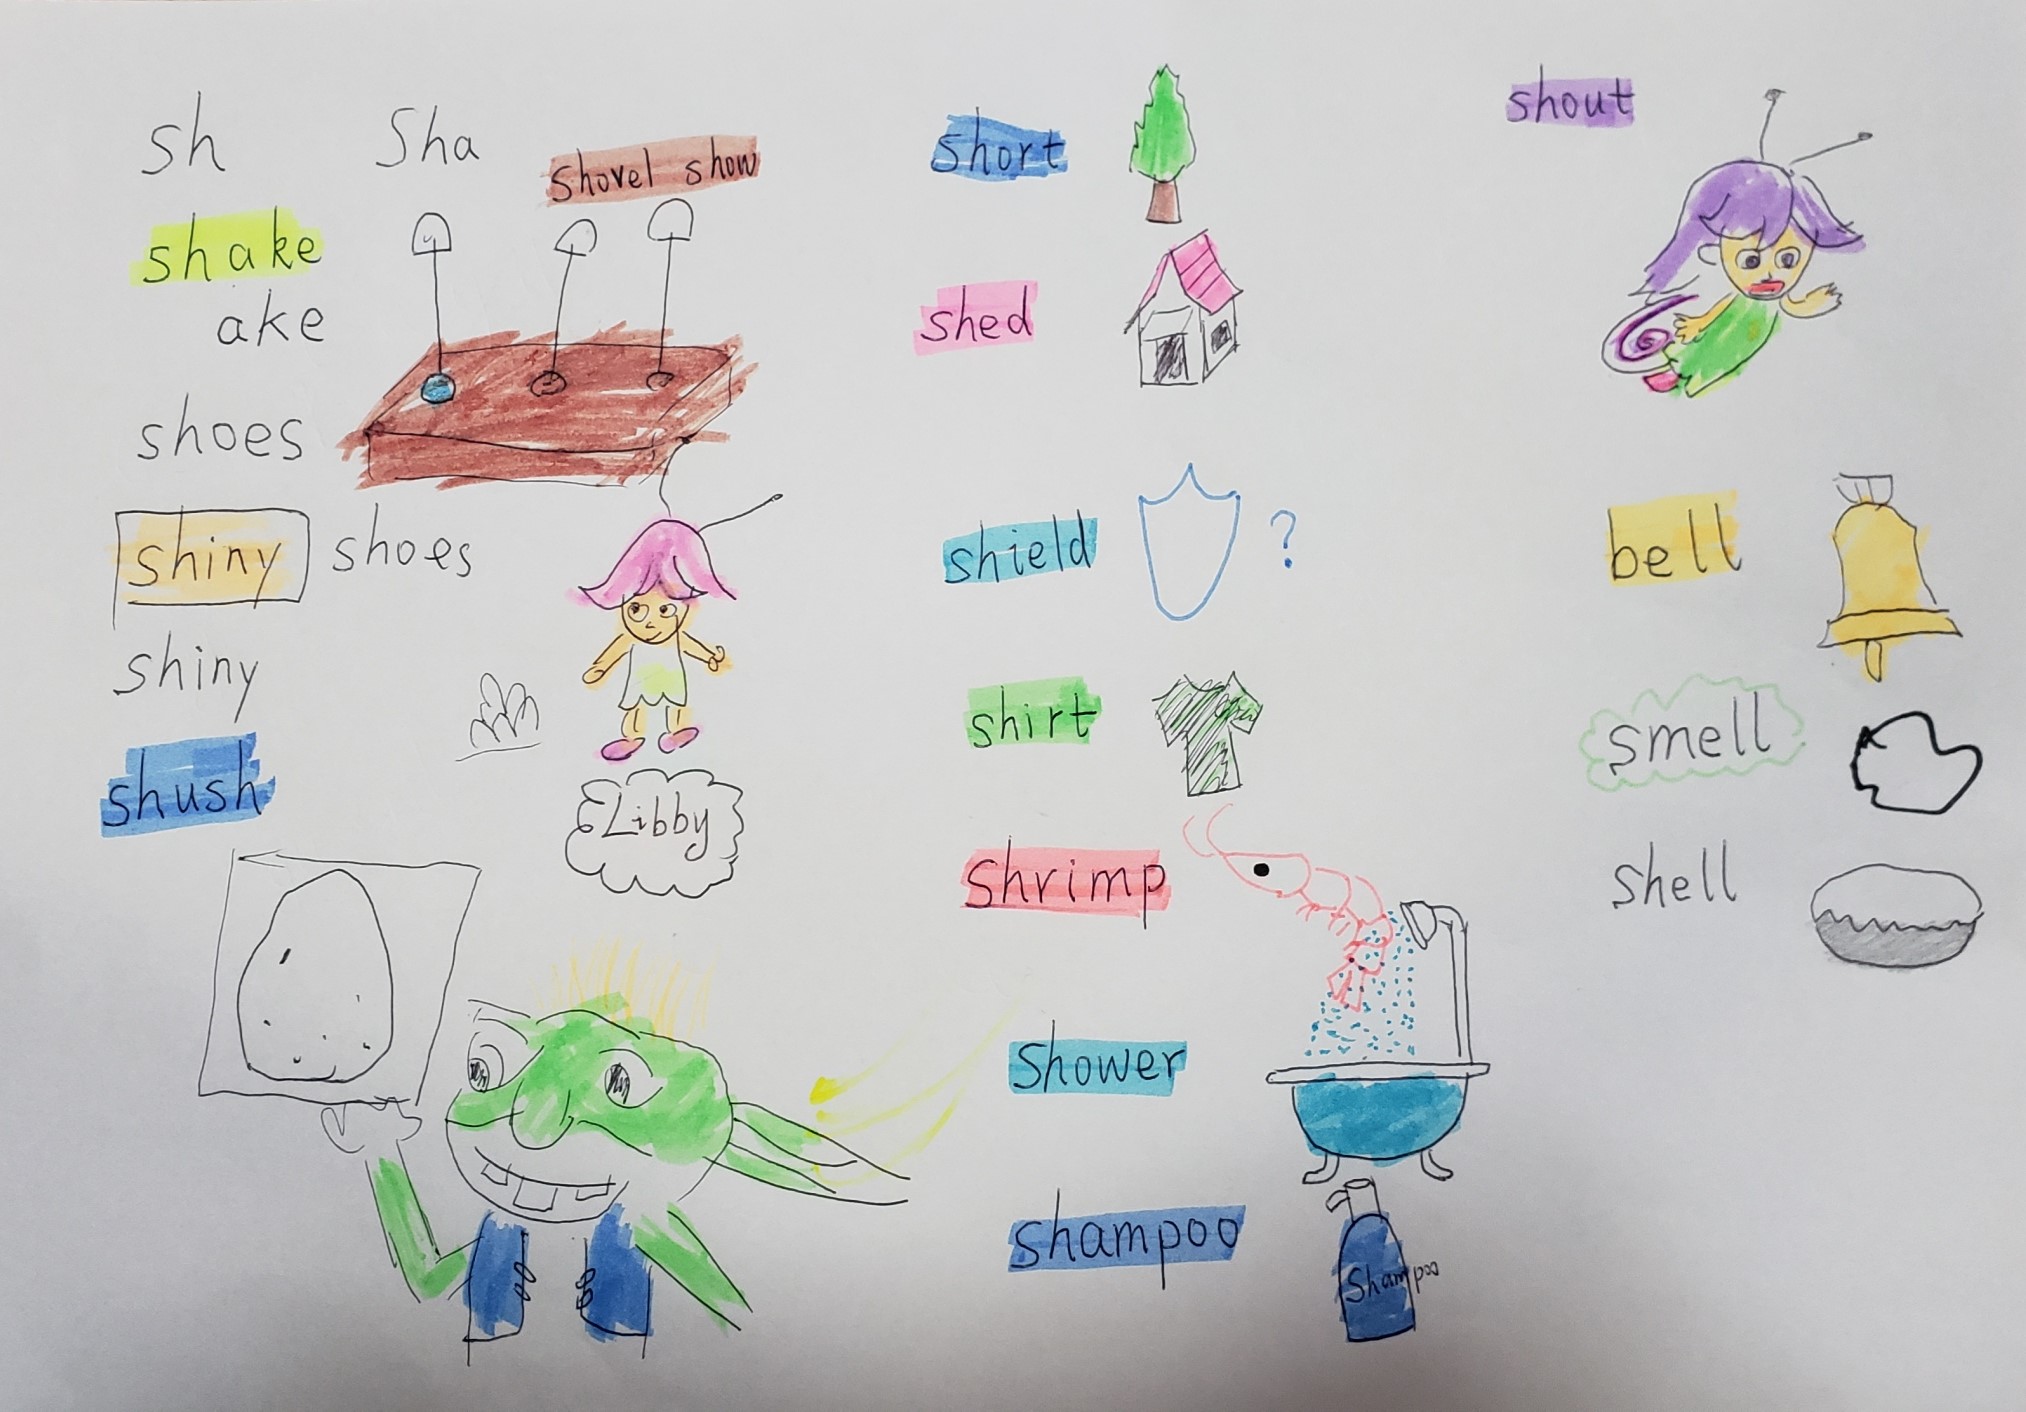 sh
Sha
shovel show
shake
ake
shoes
shiny shoes
shiny
shush
Libby
short
shed
shield ?
shirt
shrimp
shower
shampoo
Shampoo
shout
bell
smell
shell